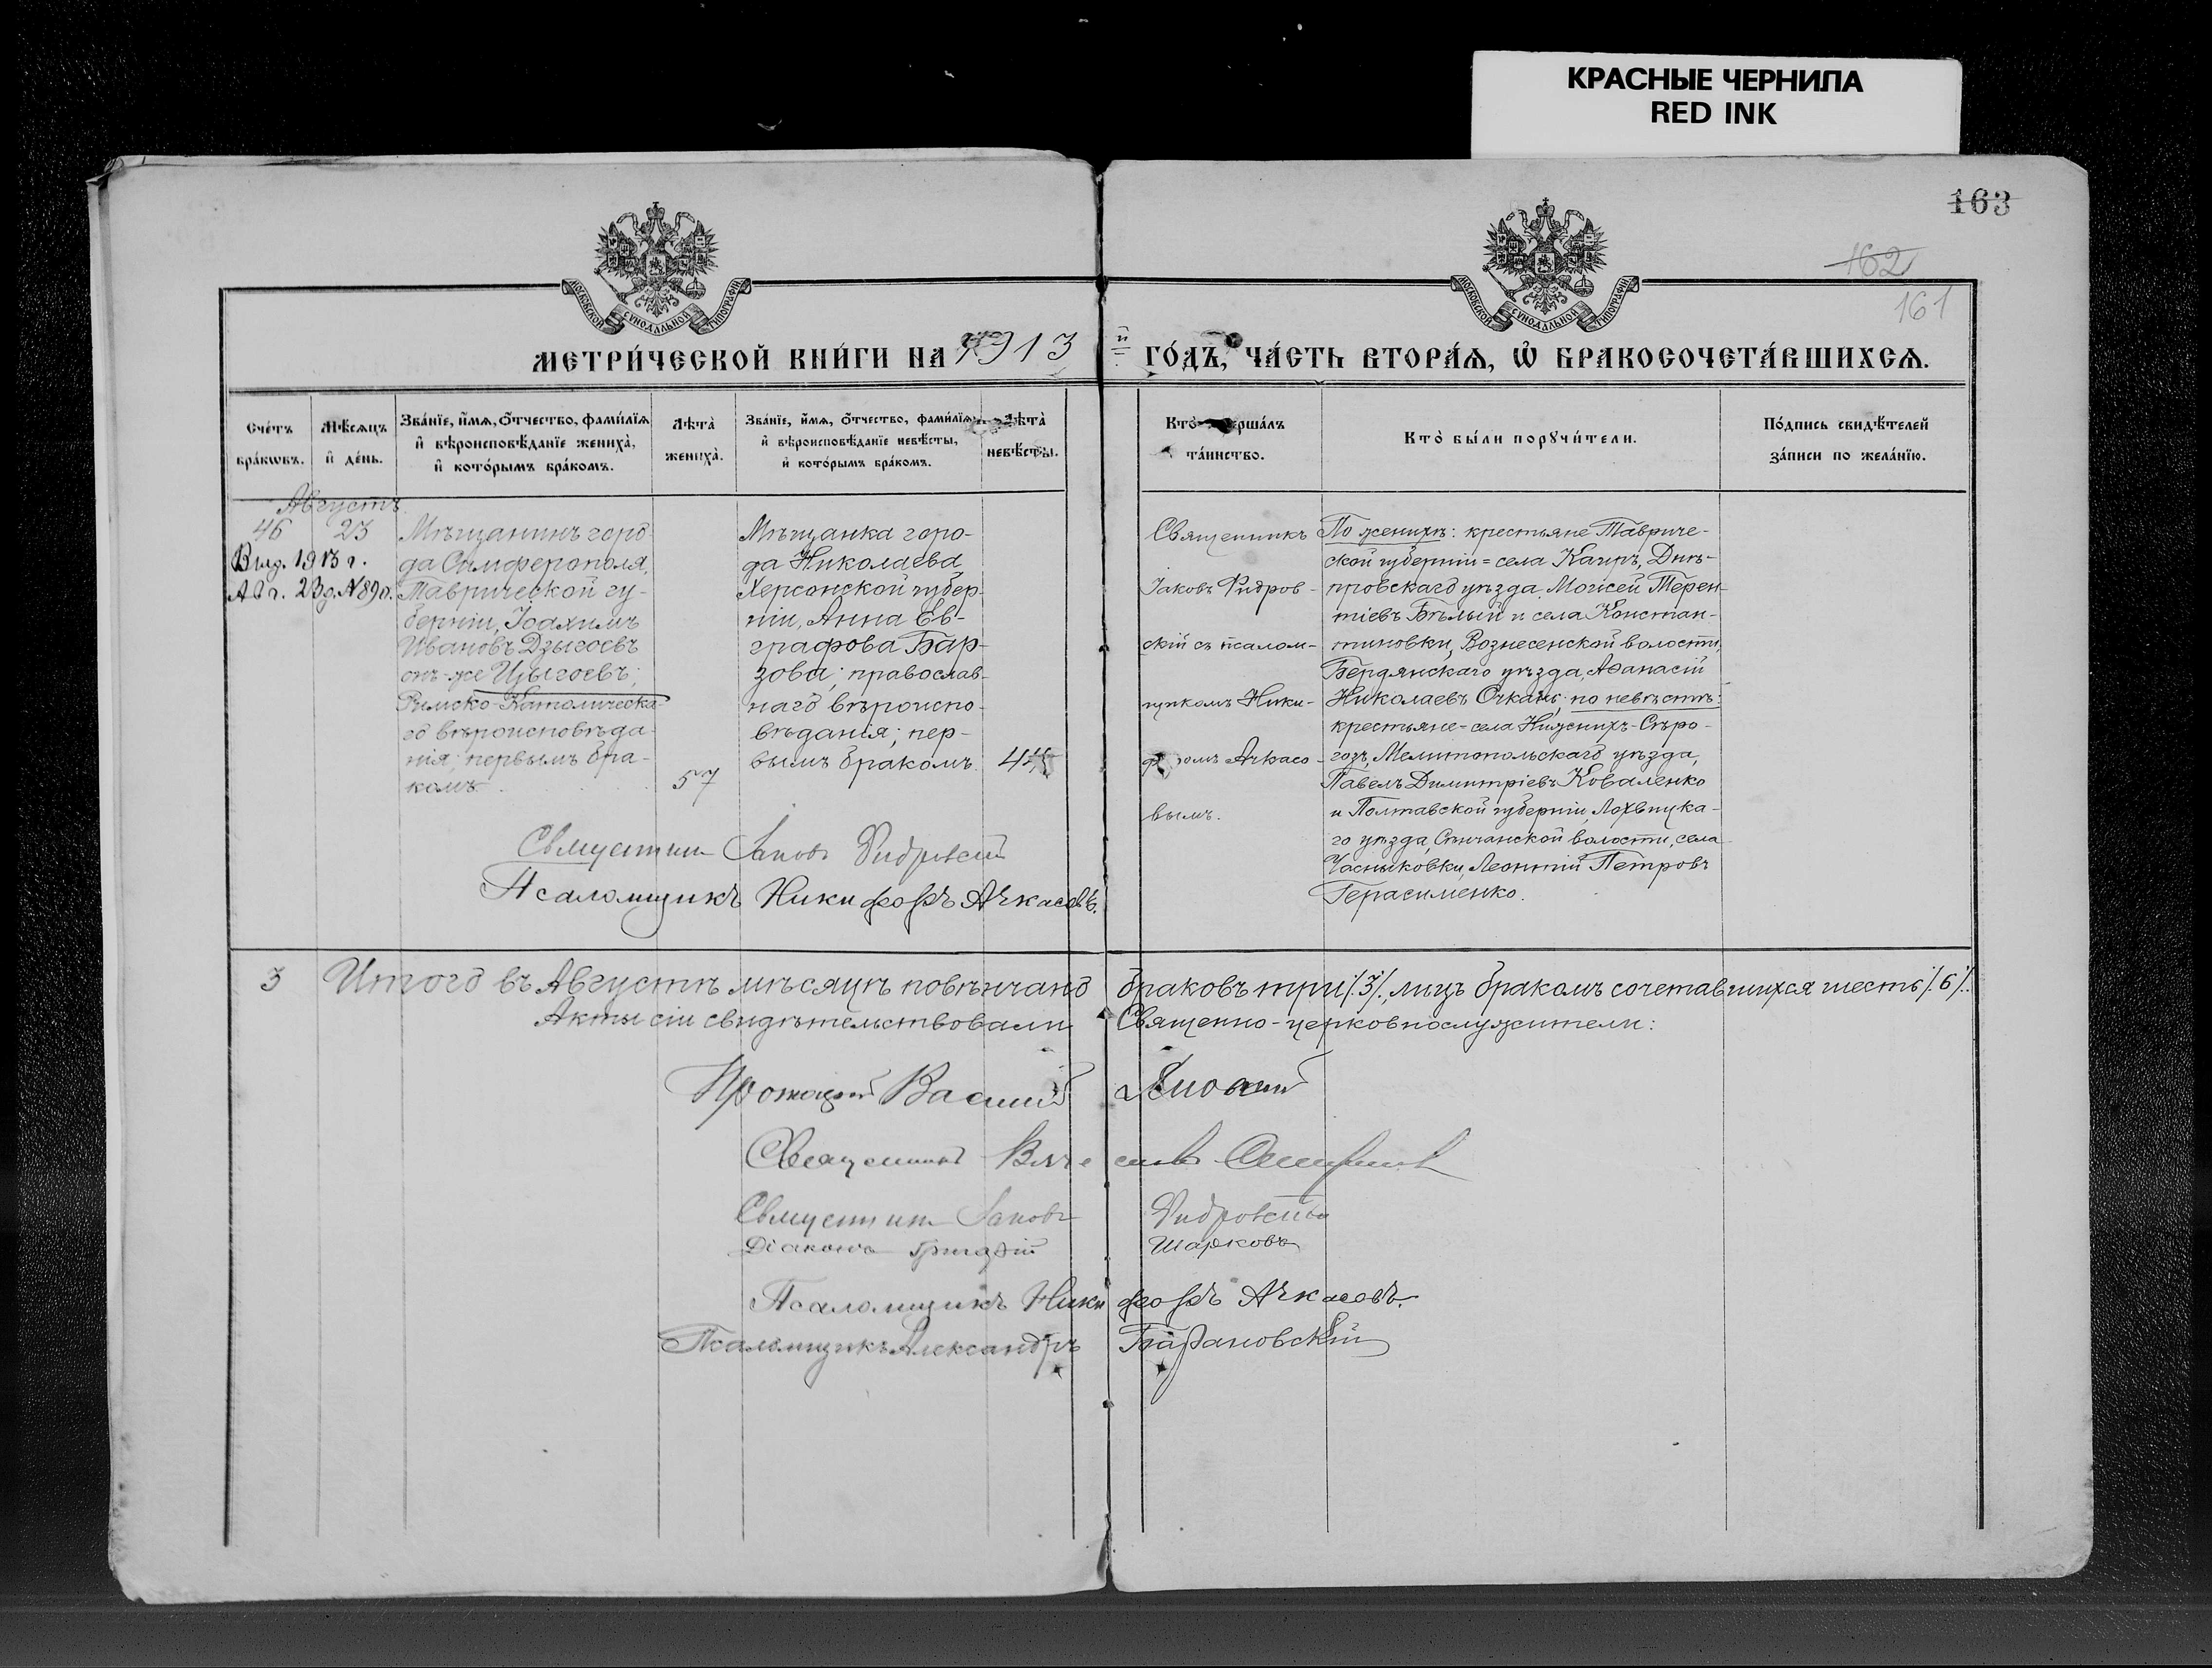 КРАСНЫЕ ЧЕРНИЛА
RED INK
163
162
161
МОСКОВСКОЙ СУНОДАЛЬНОЙ ТИПОГРАФІИ
МОСКОВСКОЙ СУНОДАЛЬНОЙ ТИПОГРАФІИ
МЕТРИ́ЧЕСКОЙ КНИ́ГИ НА 1913й ГО́ДЪ, ЧА́СТЬ ВТОРА́Ѧ, Ѡ҆ БРАКОСОЧЕТА́ВШИХСѦ.
Сче́тъ бра́кѡвъ.
Мѣ́сѧцъ и҆ де́нь.
Зва́нїе, и҆́мѧ, ѻ҆́тчество, фами́лїѧ и҆ вѣроисповѣ́данїе жениха̀, и҆ кото́рымъ бра́комъ.
Лѣта̀ жениха̀.
Зва́нїе, и҆́мѧ, ѻ҆́тчество, фами́лїѧ и҆ вѣроисповѣ́данїе невѣ́сты, и҆ кото́рымъ бра́комъ.
Лѣта̀ невѣ́сты.
Кто̀ соверша́лъ та́инство.
Кто̀ бы́ли порꙋчи́тели.
По́дпись свидѣ́телей за́писи по жела́нїю.
Августъ
46
23
Выд. 1913 г.
Авг. 23 д. № 890.
Мѣщанинъ горо-
да Симферополя,
Таврической гу-
берніи, Іоахимъ
Ивановъ Дзыгоевъ
онъ-же Цыгоевъ;
Римско-Католическа-
го вѣроисповѣда-
нія; первымъ бра-
комъ.
57
Мѣщанка горо-
да Николаева
Херсонской губер-
ніи, Анна Ев-
графова Бар-
зова; православ-
наго вѣроиспо-
вѣданія; пер-
вымъ бракомъ.
Священникъ
Іаковъ Фидров-
скій съ псалом-
щикомъ Ники-
форомъ Ачкасо-
вымъ.
По женихѣ: крестьяне Тавриче-
ской губерніи = села Каиръ, Днѣ-
провскаго уѣзда, Моисей Терен-
тіевъ Бѣлый и села Констан-
тиновки, Вознесенской волости,
Бердянскаго уѣзда, Аѳанасій
Николаевъ Очкань; по невѣстѣ:
крестьяне = села Нижнихъ-Сѣро-
гозъ, Мелитопольскаго уѣзда,
Павелъ Димитріевъ Коваленко
и Полтавской губерніи, Лохвицка-
го уѣзда, Сѣнчанской волости, села
Часниковки, Леонтій Петровъ
Герасименко.
Священникъ Іаковъ Фидровскій
Псаломщикъ Никифоръ Ачкасовъ.
3
Итого въ Августѣ мѣсяцѣ повѣнчано браковъ три /.3/., лицъ бракомъ сочетавшихся шесть /.6/.
Акты сіи свидѣтельствовали Священно-церковнослужители:
Протоіерей Василій
Священникъ Вячеславъ
Священникъ Іаковъ Фидровскій
Діаконъ Григорій Шарковъ
Псаломщикъ Никифоръ Ачкасовъ.
Псаломщикъ Александръ Барановскій